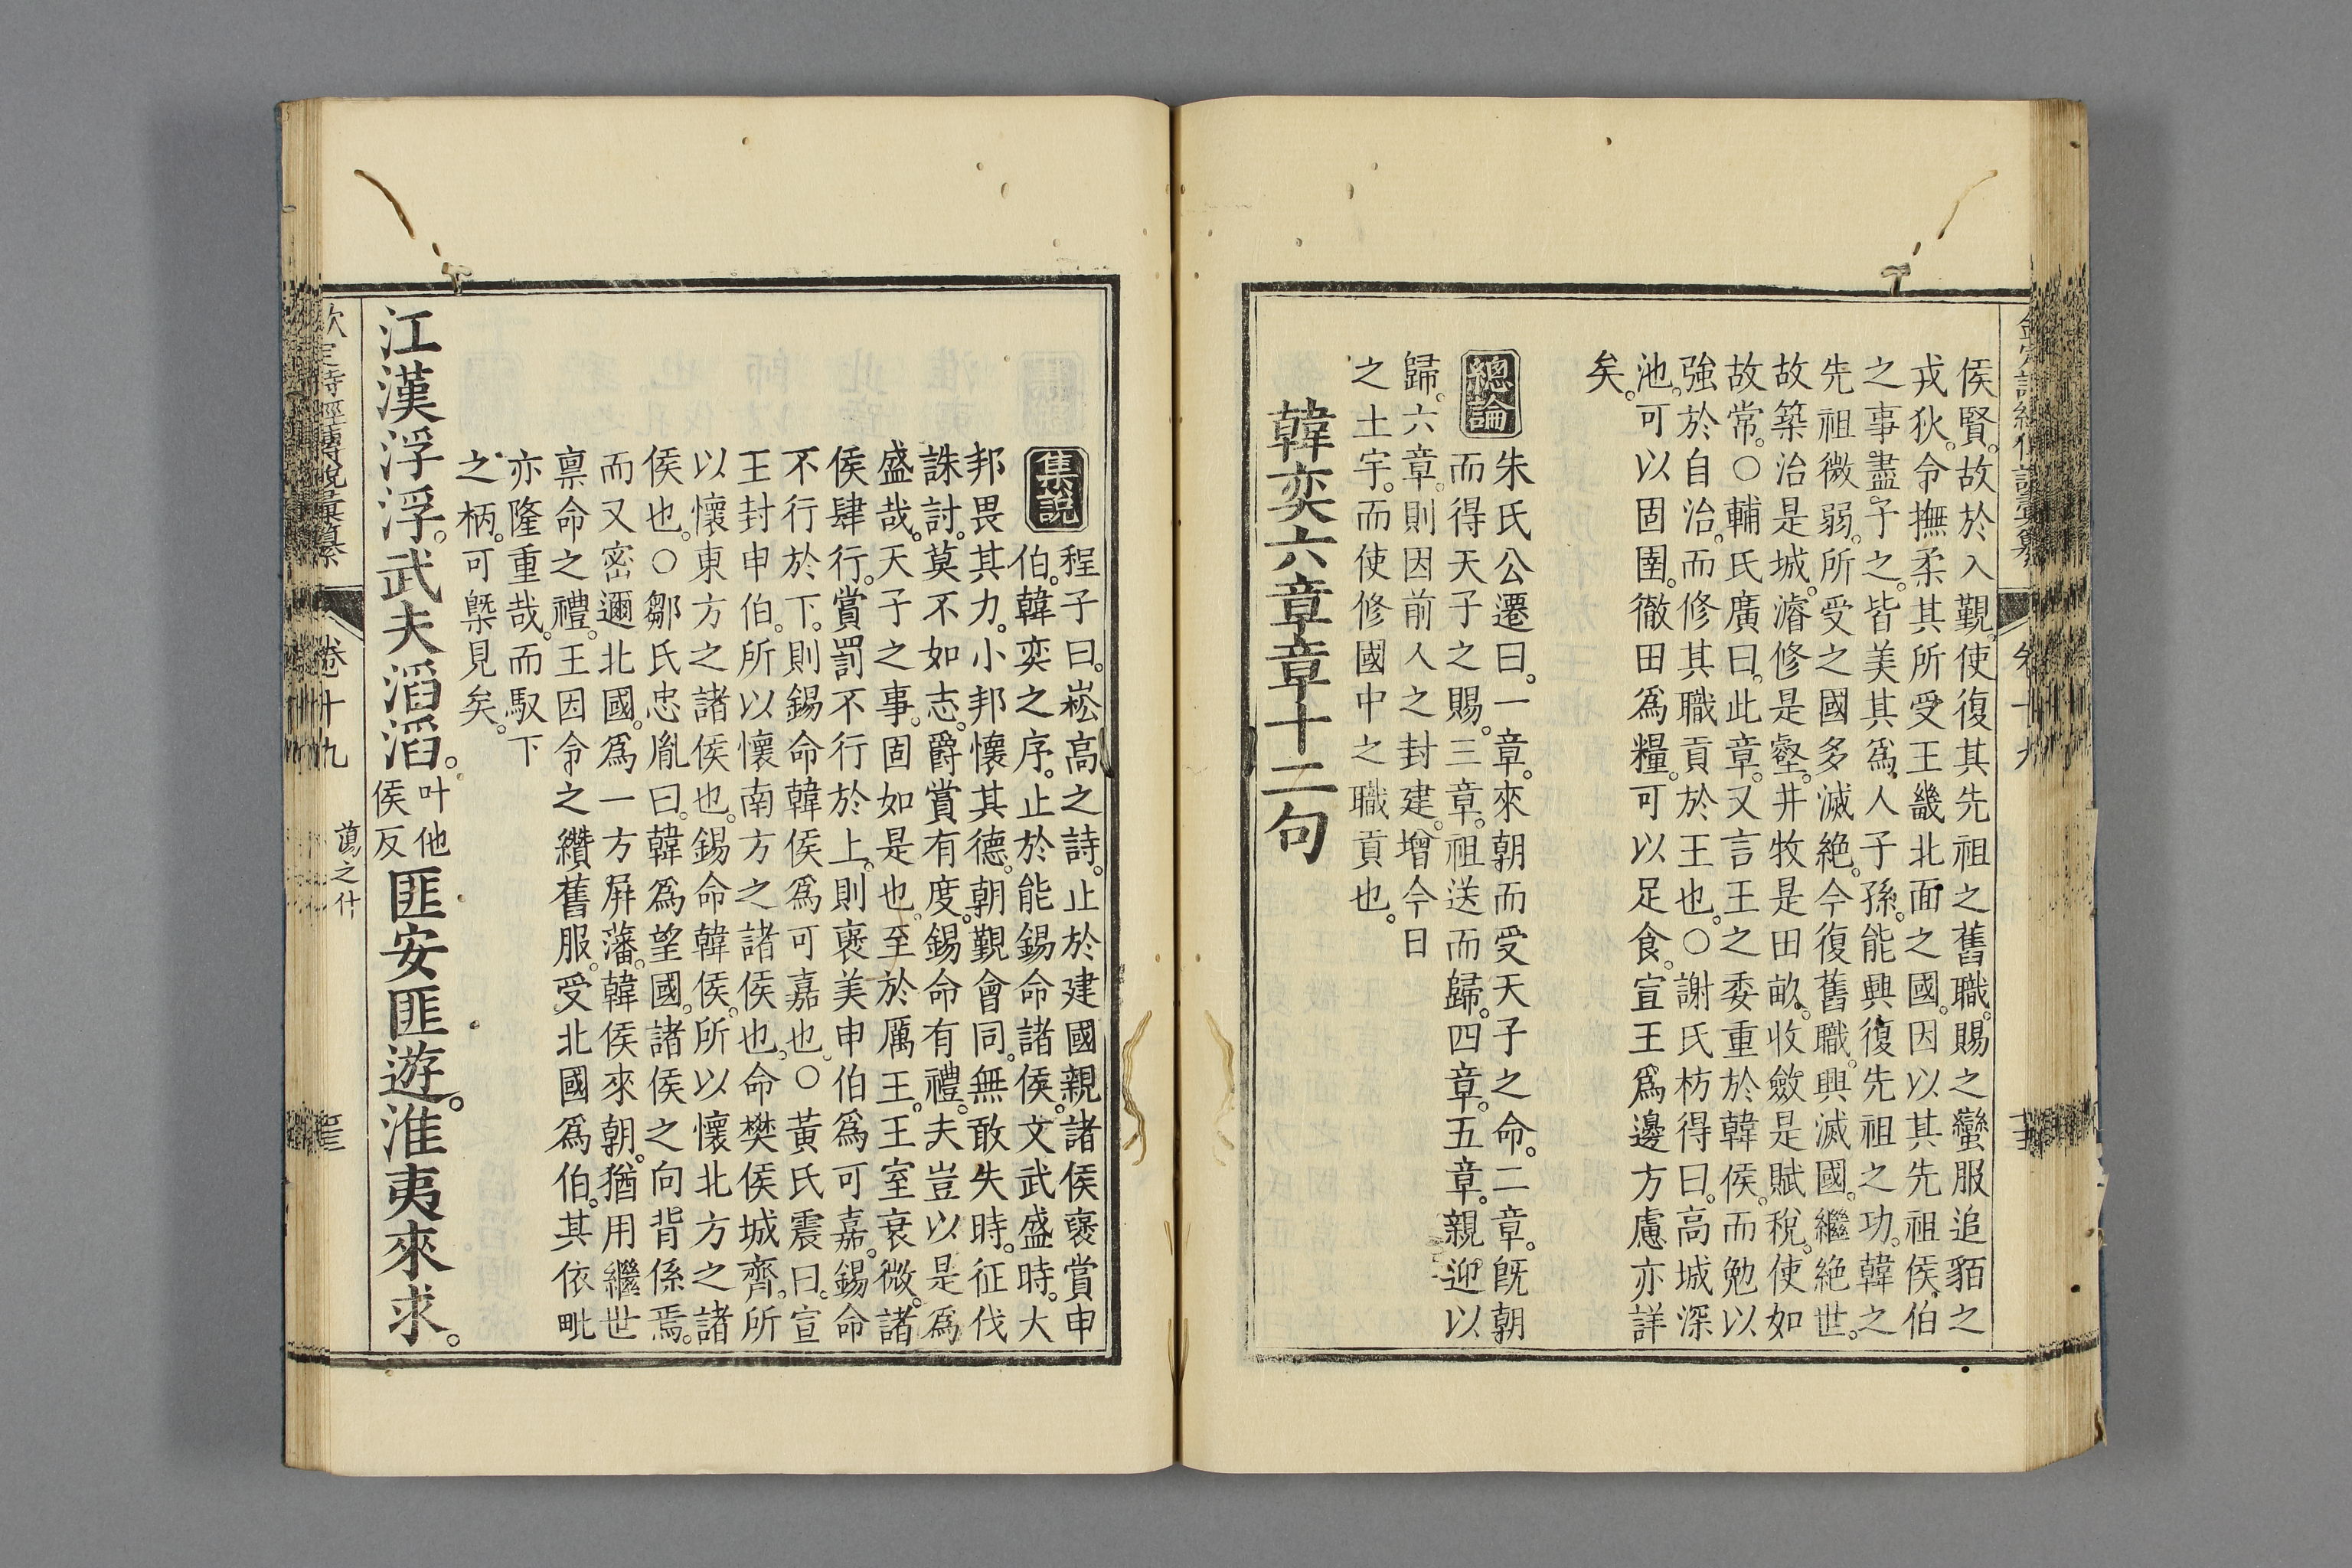 侯賢。故於入覲。使復其先祖之舊職。賜之蠻服追貊之
戎狄。令撫柔其所受王畿北面之國。因以其先祖侯伯
之事盡予之。皆美其爲人子孫。能興復先祖之功。韓之
先祖微弱。所受之國多滅絶。今復舊職。興滅國。繼絶世。
故築治是城。濬修是壑。井牧是田畝。收斂是賦稅。使如
故常。○輔氏廣曰。此章。又言王之委重於韓侯。而勉以
強於自治。而修其職貢於王也。○謝氏枋得曰。高城深
池。可以固圉。徹田爲糧。可以足食。宣王爲邊方慮亦詳
矣。
總論 朱氏公遷曰。一章。來朝而受天子之命。二章。旣朝
而得天子之賜。三章。祖送而歸。四章。五章。親迎以
歸。六章。則因前人之封建。增今日
之土宇。而使修國中之職貢也。
韓奕六章章十二句
集說 程子曰。崧高之詩。止於建國親諸侯褒賞申
伯。韓奕之序。止於能錫命諸侯。文武盛時。大
邦畏其力。小邦懷其德。朝覲會同。無敢失時。征伐
誅討。莫不如志。爵賞有度。錫命有禮。夫豈以是爲
盛哉。天子之事。固如是也。至於厲王。王室衰微。諸
侯肆行。賞罰不行於上。則褒美申伯爲可嘉。錫命
不行於下。則錫命韓侯爲可嘉也。○黃氏震曰。宣
王封申伯。所以懷南方之諸侯也。命樊侯城齊。所
以懷東方之諸侯也。錫命韓侯。所以懷北方之諸
侯也。○鄒氏忠胤曰。韓爲望國。諸侯之向背係焉。
而又密邇北國。爲一方屏藩。韓侯來朝。猶用繼世
禀命之禮。王因令之纘舊服。受北國爲伯。其依毗
亦隆重哉。而馭下
之柄。可槩見矣。
江漢浮浮。武夫滔滔。叶他侯反匪安匪遊。淮夷來求。
欽定詩經傳說彙纂 卷十九 蕩之什